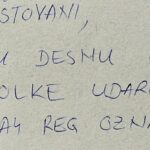 STOVANI,
U DESNU
OLKE UDARI
A4 REG OZNA